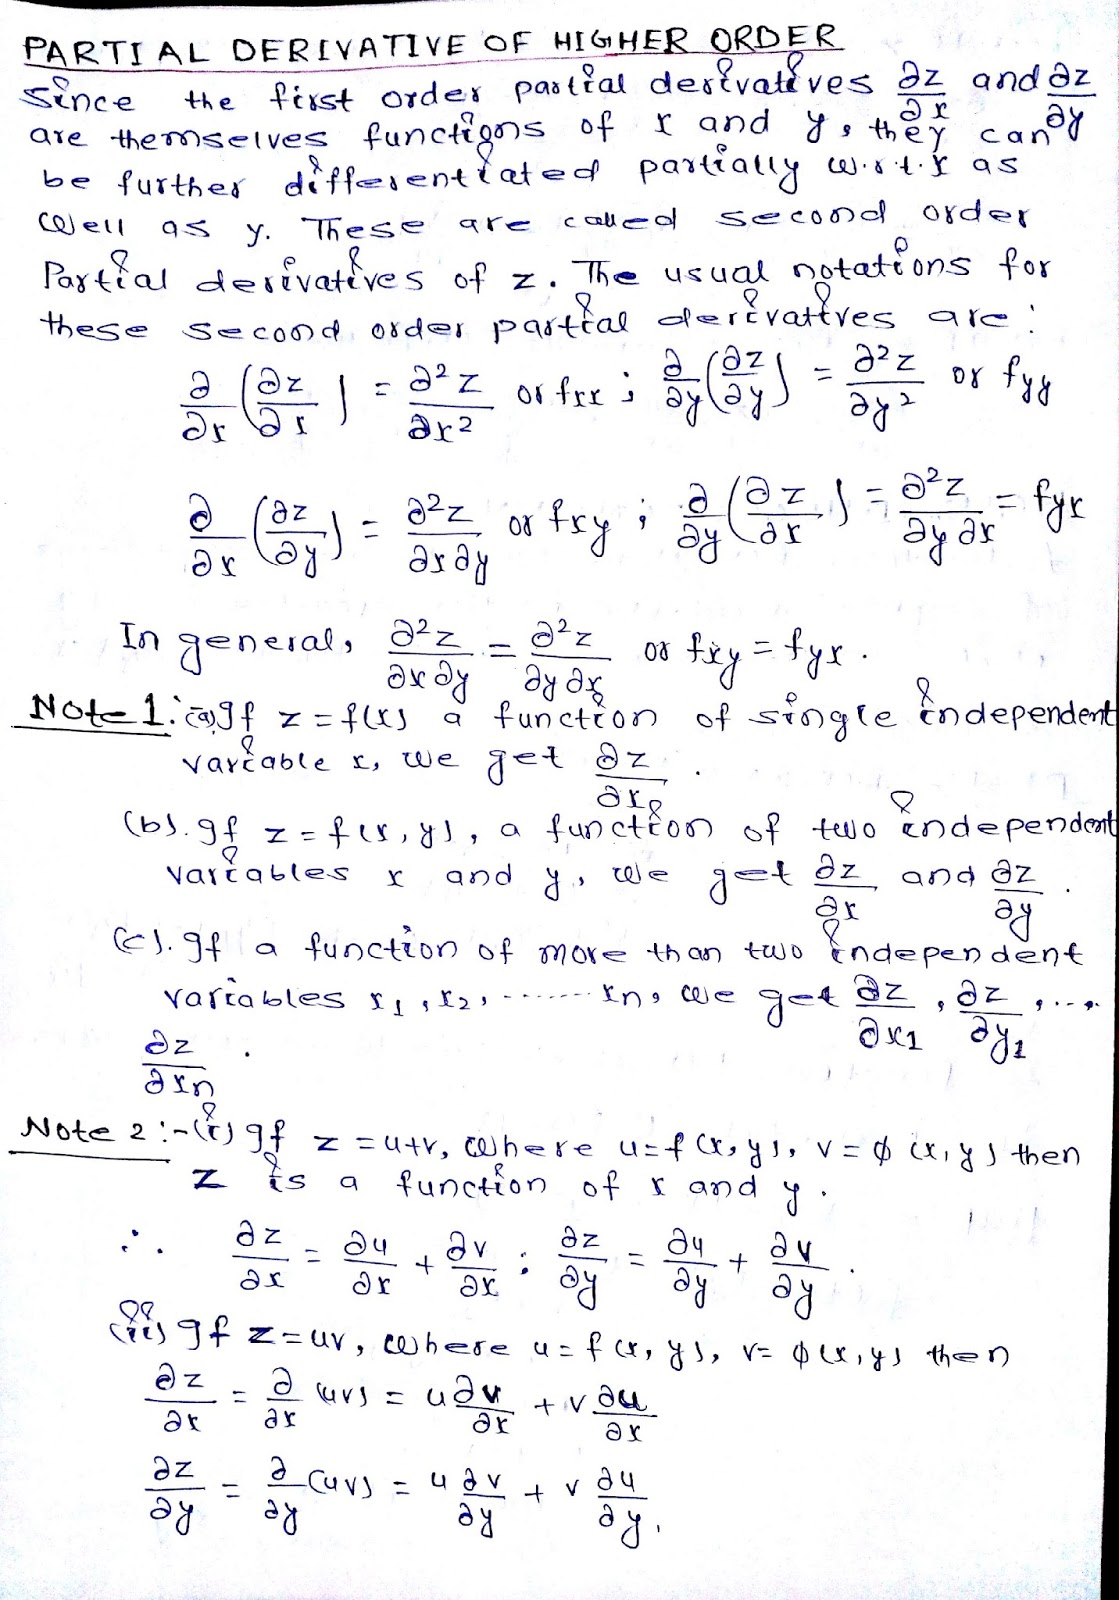 PARTIAL DERIVATIVE OF HIGHER ORDER
Since the first order partial derivatives ∂z/∂x and ∂z/∂y
are themselves functions of x and y, they can
be further differentiated partially w.r.t. x as
well as y. These are called second order
Partial derivatives of z. The usual notations for
these second order partial derivatives are:
∂/∂x (∂z/∂x) = ∂²z/∂x² or fxx ; ∂/∂y (∂z/∂y) = ∂²z/∂y² or fyy
∂/∂x (∂z/∂y) = ∂²z/∂x∂y or fxy ; ∂/∂y (∂z/∂x) = ∂²z/∂y∂x = fyx
In general, ∂²z/∂x∂y = ∂²z/∂y∂x or fxy = fyx.
Note 1: (a) If z = f(x) a function of single independent
variable x, we get ∂z/∂x.
(b). If z = f(x, y), a function of two independent
variables x and y, we get ∂z/∂x and ∂z/∂y.
(c). If a function of more than two independent
variables x1, x2, ....... xn, we get ∂z/∂x1, ∂z/∂y1, ....
∂z/∂xn.
Note 2:- (i) If z = u+v, where u = f(x, y), v = φ(x, y) then
z is a function of x and y.
∴ ∂z/∂x = ∂u/∂x + ∂v/∂x ; ∂z/∂y = ∂u/∂y + ∂v/∂y.
(ii) If z = uv, where u = f(x, y), v = φ(x, y) then
∂z/∂x = ∂/∂x (uv) = u ∂v/∂x + v ∂u/∂x
∂z/∂y = ∂/∂y (uv) = u ∂v/∂y + v ∂u/∂y.